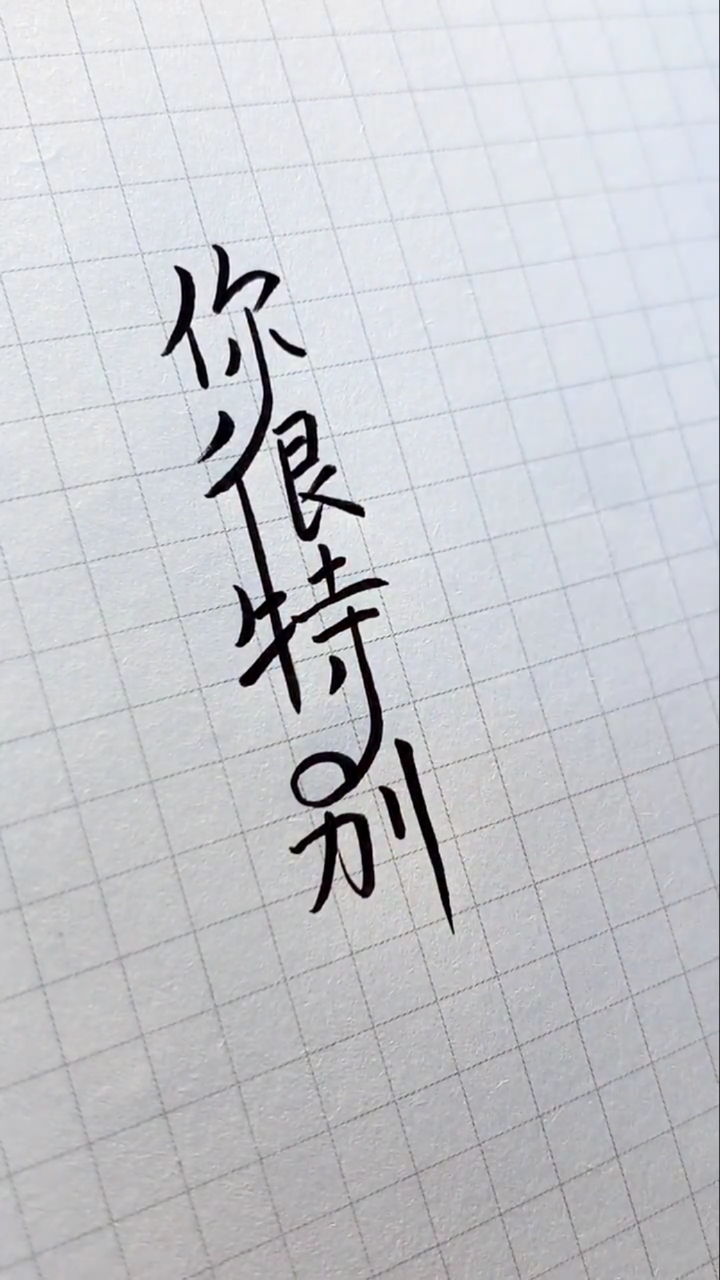 你很特别